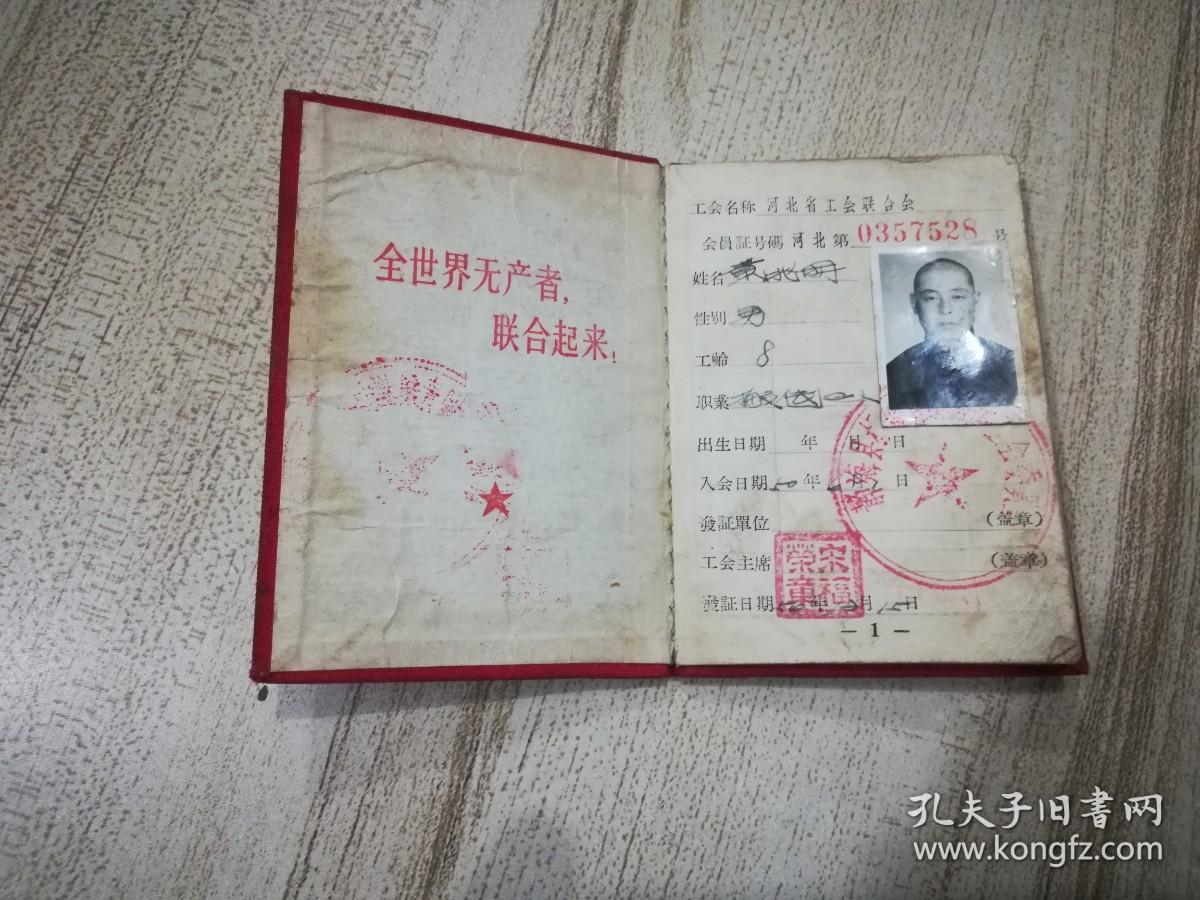 全世界无产者,
联合起来!
工会名称 河北省工会联合会
会員証号碼 河北第 0357528 号
姓名 黄
性别 男
工齡 8
职業 搬运工人
出生日期 年 月 日
入会日期 50年 月 日
發証單位 (盖章)
工会主席 (盖章)
宋福荣章
發証日期 年 月 15日
- 1 -
孔夫子旧書网
www.kongfz.com